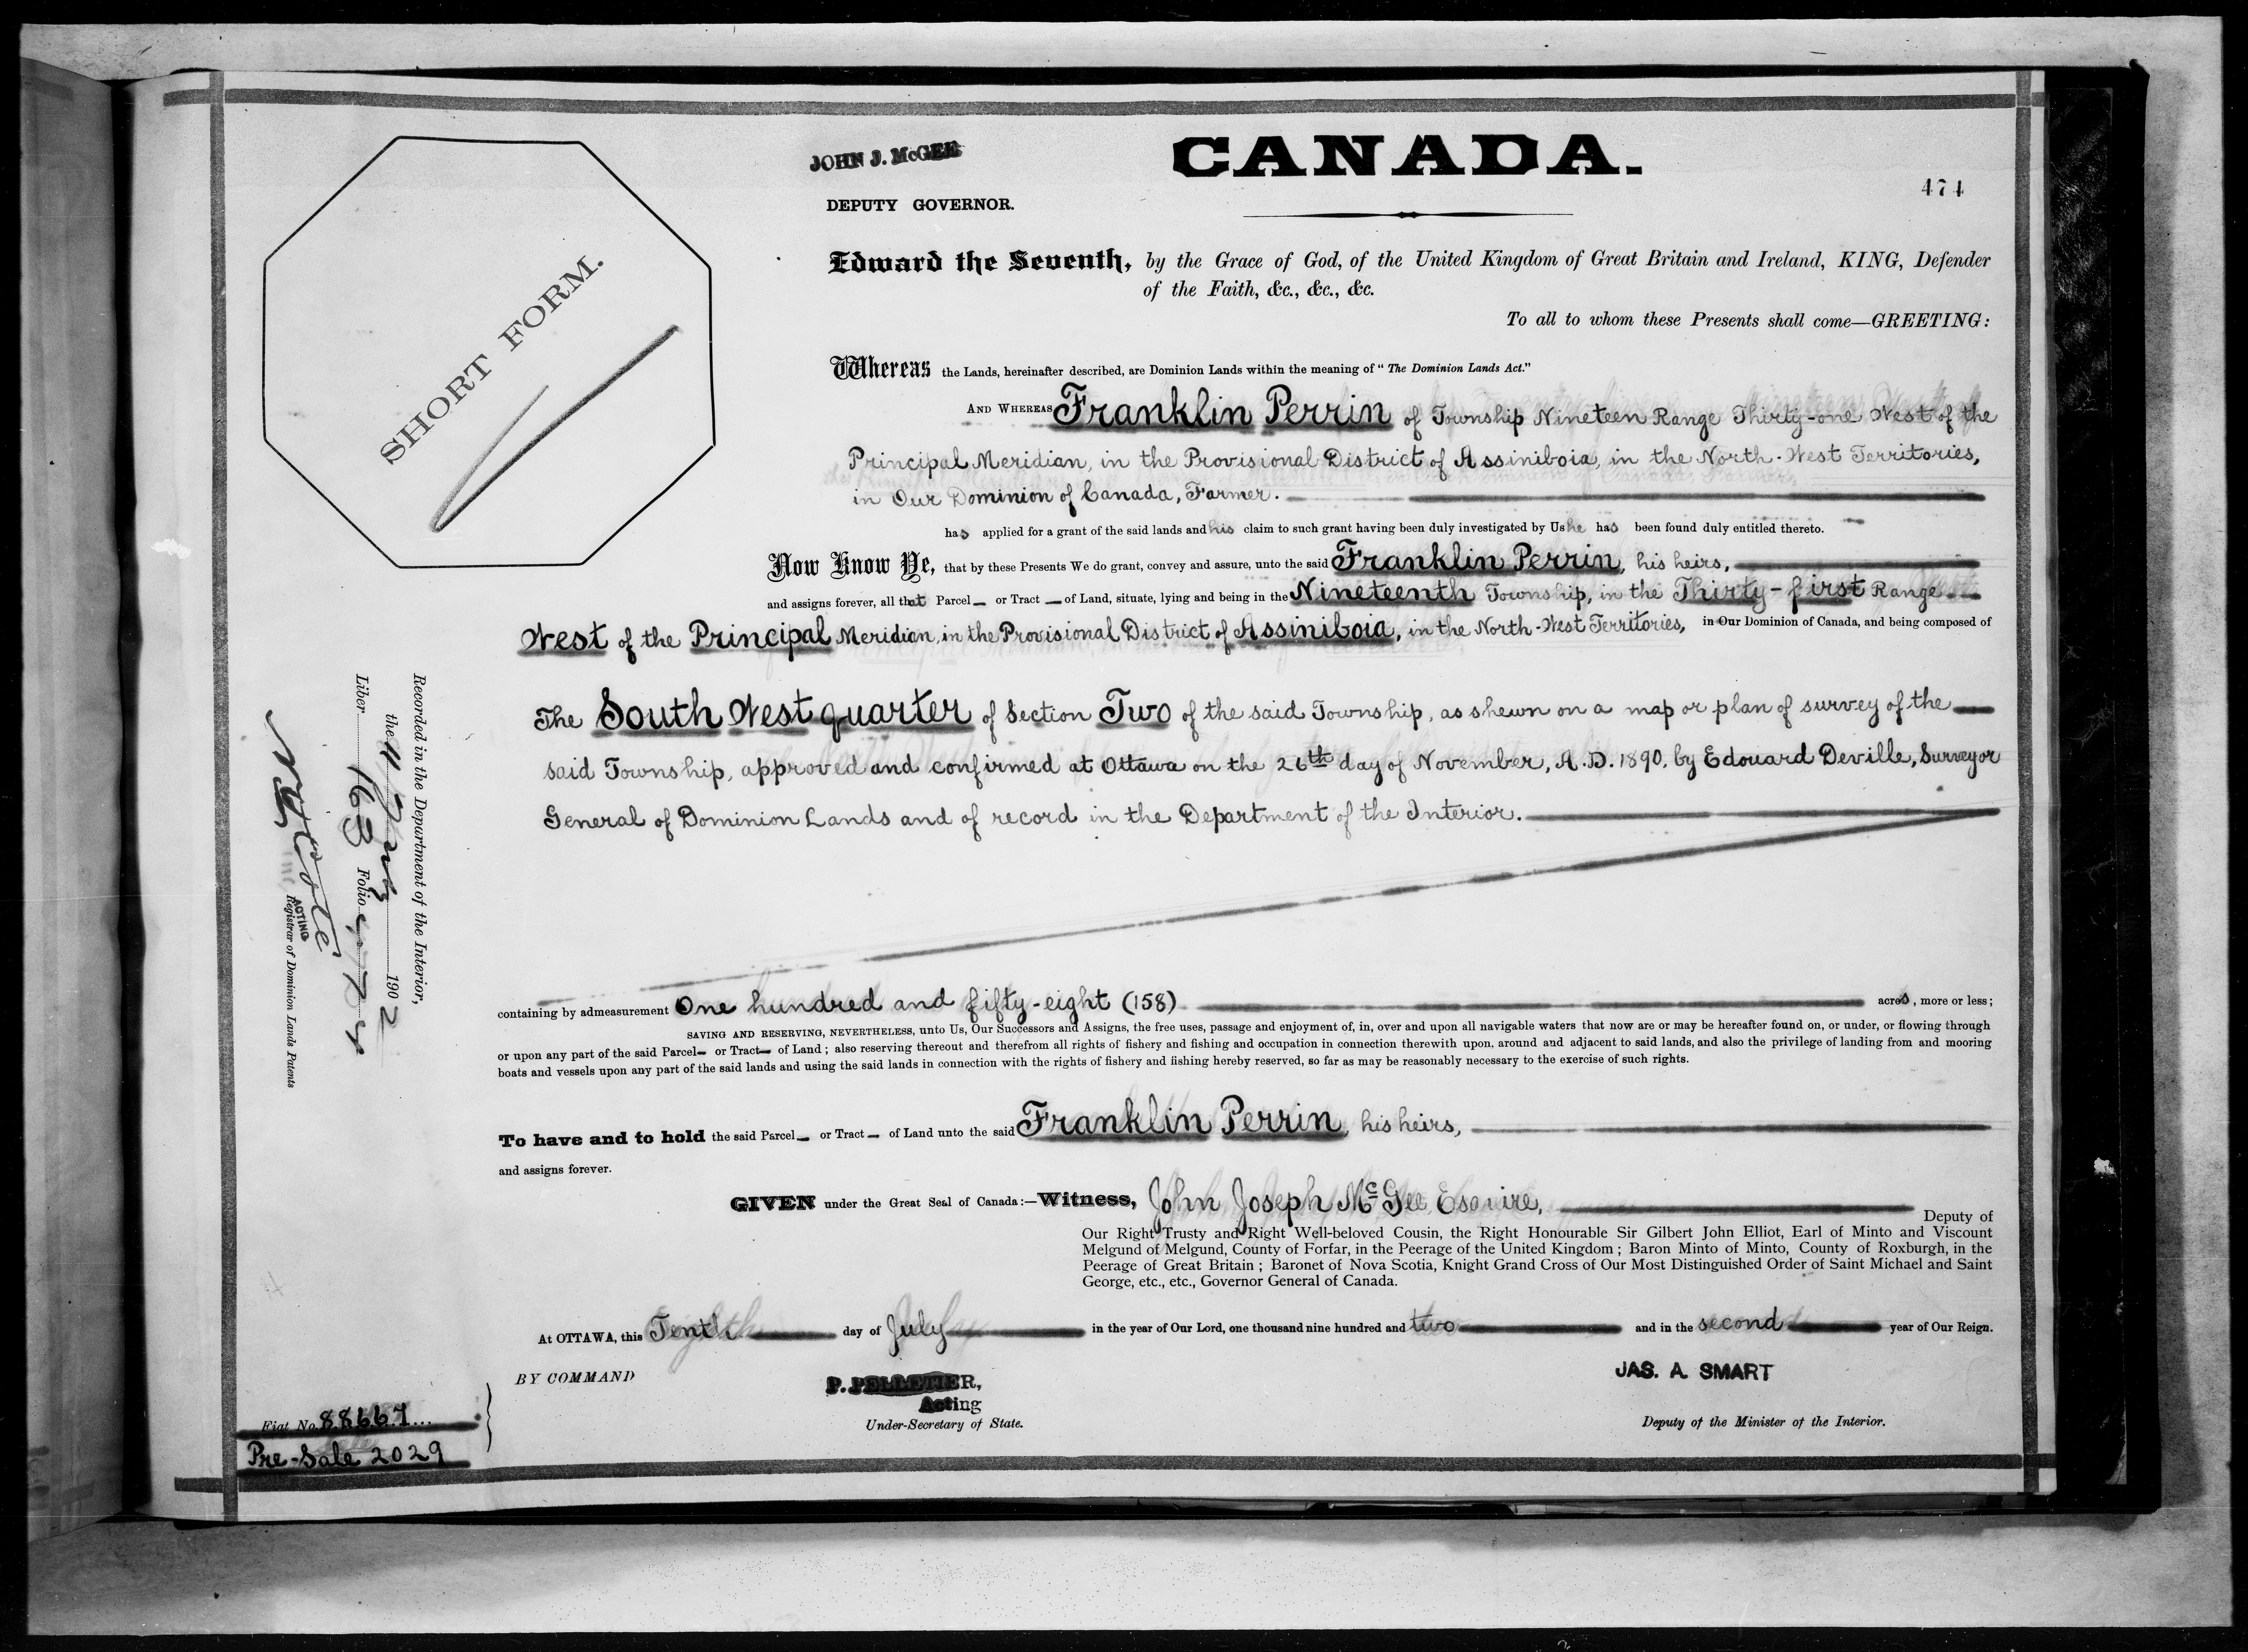 JOHN J. McGEE
CANADA.
DEPUTY GOVERNOR.
474
SHORT FORM.
Edward the Seventh, by the Grace of God, of the United Kingdom of Great Britain and Ireland, KING, Defender
of the Faith, &c., &c., &c.
To all to whom these Presents shall come—GREETING:
Whereas the Lands, hereinafter described, are Dominion Lands within the meaning of "The Dominion Lands Act."
AND WHEREAS Franklin Perrin of Township Nineteen Range Thirty-one West of the
Principal Meridian, in the Provisional District of Assiniboia, in the North-West Territories,
in Our Dominion of Canada, Farmer.
has applied for a grant of the said lands and his claim to such grant having been duly investigated by Us he has been found duly entitled thereto.
Now Know Ye, that by these Presents We do grant, convey and assure, unto the said Franklin Perrin, his heirs,
and assigns forever, all that Parcel or Tract of Land, situate, lying and being in the Nineteenth Township, in the Thirty-first Range
West of the Principal Meridian, in the Provisional District of Assiniboia, in the North-West Territories, in Our Dominion of Canada, and being composed of
The South West quarter of Section Two of the said Township, as shewn on a map or plan of survey of the
said Township, approved and confirmed at Ottawa on the 26th day of November, A.D. 1890, by Edouard Deville, Surveyor
General of Dominion Lands and of record in the Department of the Interior.
containing by admeasurement One hundred and fifty-eight (158) acres, more or less;
SAVING AND RESERVING, NEVERTHELESS, unto Us, Our Successors and Assigns, the free uses, passage and enjoyment of, in, over and upon all navigable waters that now are or may be hereafter found on, or under, or flowing through
or upon any part of the said Parcel or Tract of Land; also reserving thereout and therefrom all rights of fishery and fishing and occupation in connection therewith upon, around and adjacent to said lands, and also the privilege of landing from and mooring
boats and vessels upon any part of the said lands and using the said lands in connection with the rights of fishery and fishing hereby reserved, so far as may be reasonably necessary to the exercise of such rights.
To have and to hold the said Parcel or Tract of Land unto the said Franklin Perrin, his heirs,
and assigns forever.
GIVEN under the Great Seal of Canada:—Witness, John Joseph McGee Esquire,
Deputy of
Our Right Trusty and Right Well-beloved Cousin, the Right Honourable Sir Gilbert John Elliot, Earl of Minto and Viscount
Melgund of Melgund, County of Forfar, in the Peerage of the United Kingdom; Baron Minto of Minto, County of Roxburgh, in the
Peerage of Great Britain; Baronet of Nova Scotia, Knight Grand Cross of Our Most Distinguished Order of Saint Michael and Saint
George, etc., etc., Governor General of Canada.
At OTTAWA, this Tenth day of July in the year of Our Lord, one thousand nine hundred and two and in the second year of Our Reign.
BY COMMAND
P. PELLETIER,
Acting
Under-Secretary of State.
JAS. A. SMART
Deputy of the Minister of the Interior.
Fiat No. 88667
Pre-Sale 2029
Recorded in the Department of the Interior,
the 11 July 1902
Liber 163 Folio 474
N O Coté
ACTING
Registrar of Dominion Lands Patents